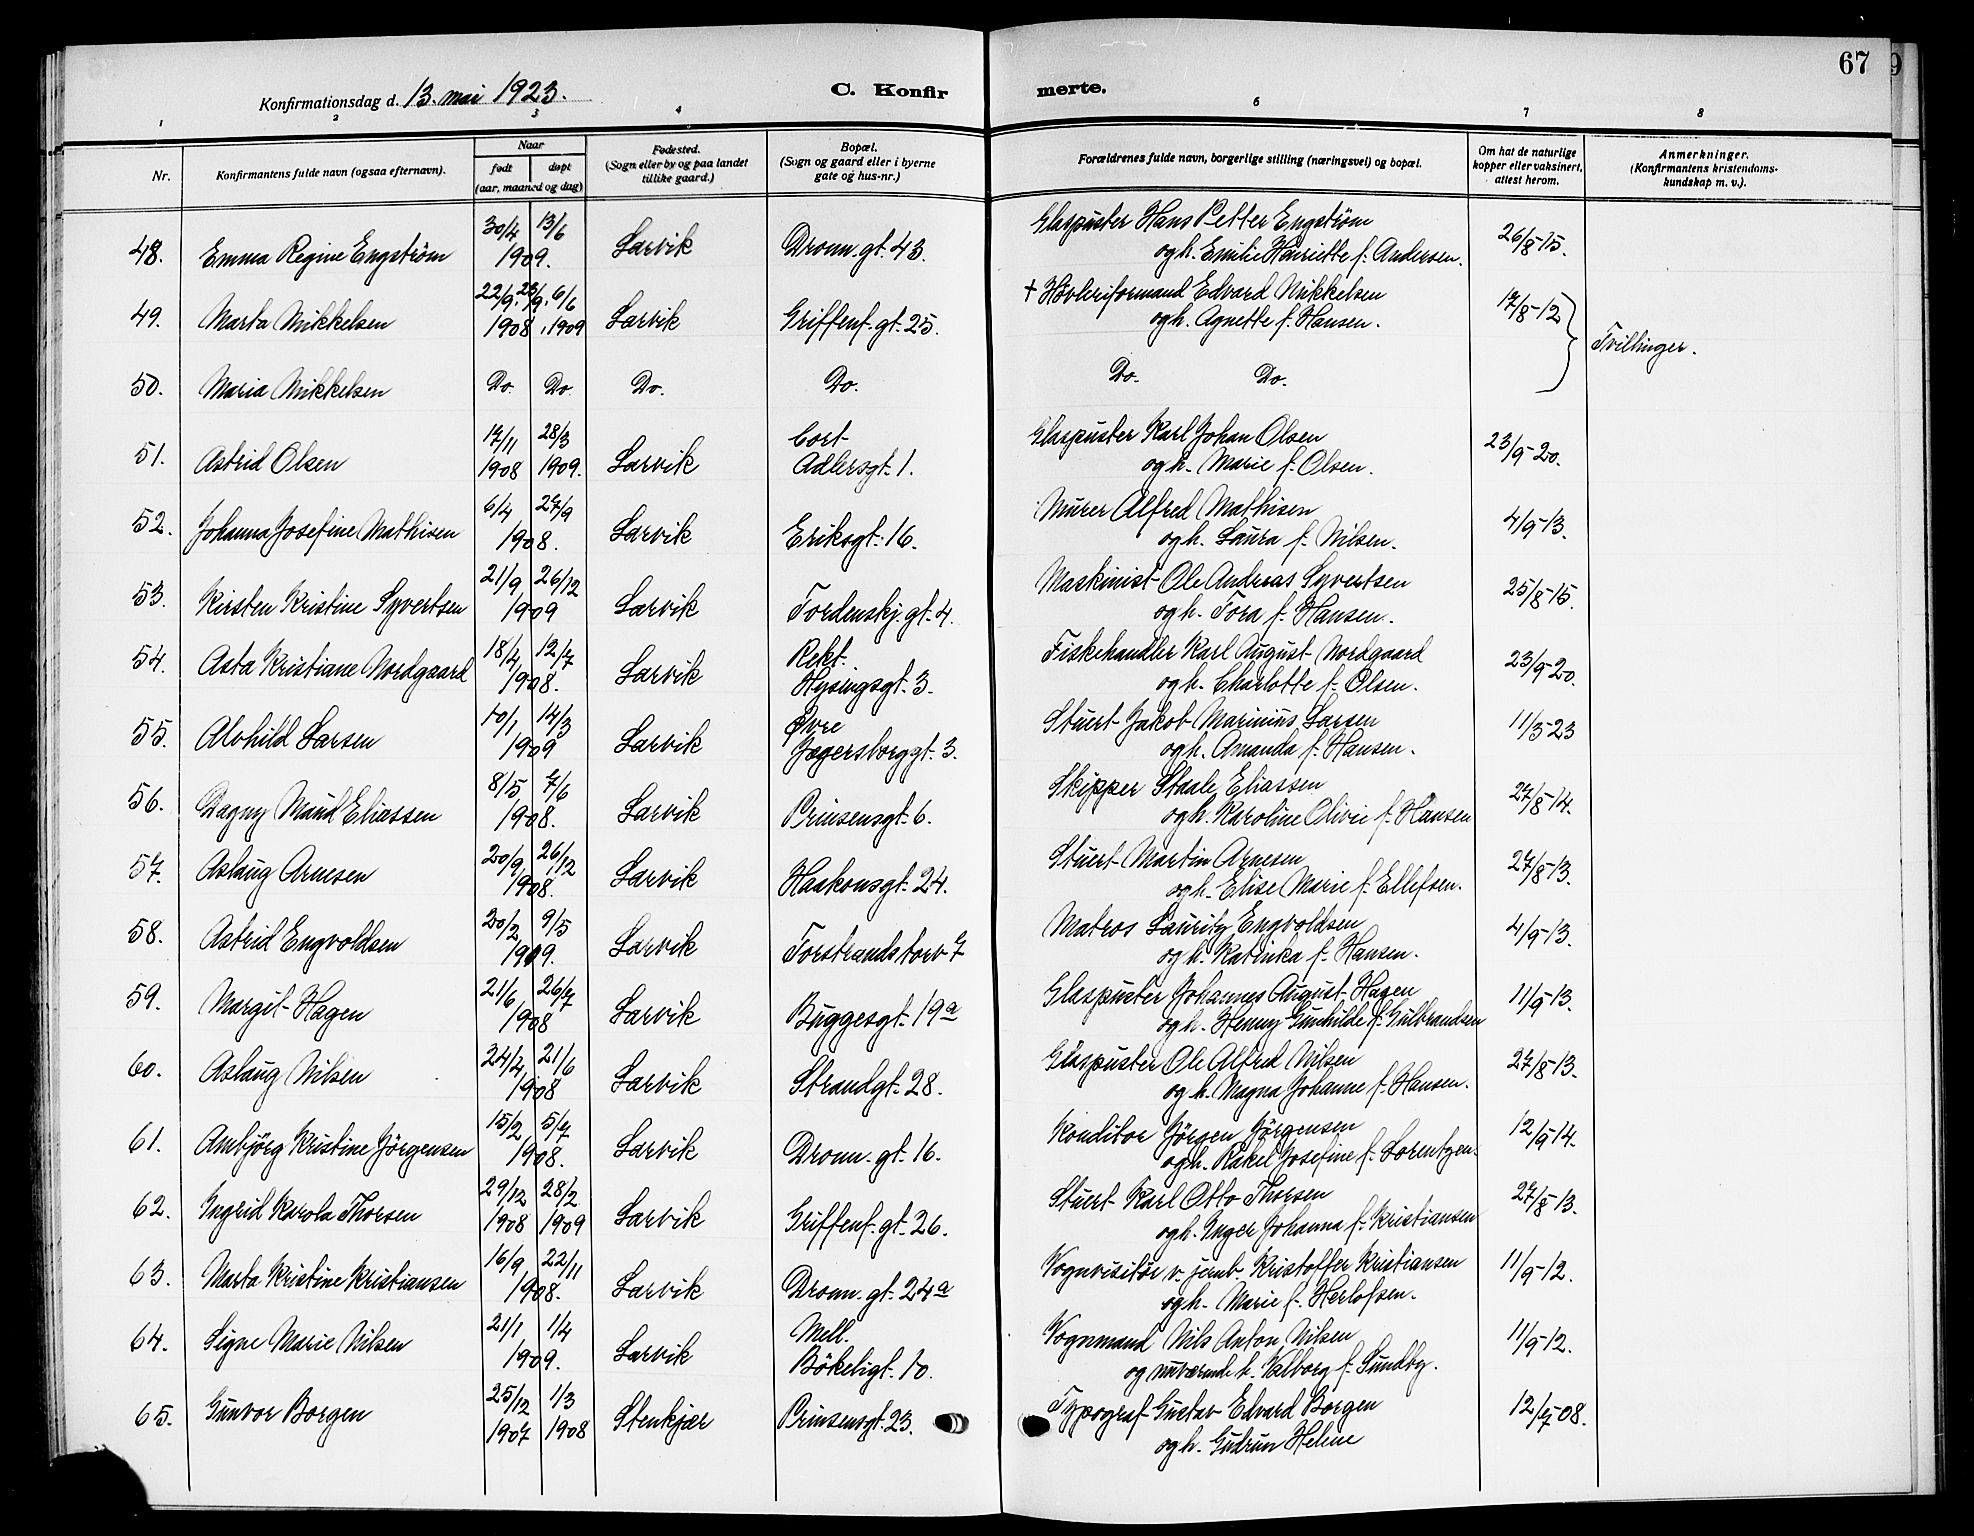 67
9
Konfirmationsdag d. 13. mai 1923.
C. Konfirmerte.
1 2 3 4 6 7 8
Nr.
Konfirmantens fulde navn (ogsaa efternavn).
Naar
født døpt
(aar, maaned og dag)
Fødested.
(Sogn eller by og paa landet
tillike gaard.)
Bopæl.
(Sogn og gaard eller i byerne
gate og hus-nr.)
Forældrenes fulde navn, borgerlige stilling (næringsvei) og bopæl.
Om hat de naturlige
kopper eller vaksinert,
attest herom.
Anmerkninger.
(Konfirmantens kristendoms-
kundskap m. v.).
30/4 13/6 Glaspuster Hans Petter Engstrøm
48. Emma Regine Engstrøm 1909. Larvik Dronn. gt. 43. og h. Emilie Henriette f. Andersen. 26/8-15.
22/9. 23/9. 6/6 + Høvleriformand Edvard Mikkelsen
49. Marta Mikkelsen 1908. 1909 Larvik Griffenf. gt. 25. og h. Agnette f. Hansen. 17/8-12
Tvillinger.
50. Maria Mikkelsen Do. Do. Do. Do. Do. Do.
17/11 28/3 Cort Glaspuster Karl Johan Olsen
51. Astrid Olsen 1908 1909. Larvik Adlersgt. 1. og h. Marie f. Olsen. 23/9-20.
6/4 27/9 Murer Alfred Mathisen
52. Johanna Josefine Mathisen 1908. Larvik Eriksgt. 16. og h. Laura f. Nilsen. 4/9-13.
21/9 26/12 Maskinist Ole Andreas Syvertsen
53. Kirsten Kristine Syvertsen 1909 Larvik Tordenskj. gt. 4. og h. Tora f. Hansen. 25/8-15.
18/4 12/7 Rekt. Fiskehandler Karl August Nordgaard
54. Asta Kristiane Nordgaard 1908. Larvik Hysingsgt. 3. og h. Charlotte f. Olsen. 23/9-20.
10/1 14/3 Øvre Stuert Jakob Marinius Larsen
55. Alvhild Larsen 1909 Larvik Jegersborggt. 3. og h. Amanda f. Hansen. 11/3-23
8/5 7/6 Skipper Staale Eliassen
56. Dagny Maud Eliassen 1908. Larvik Prinsensgt. 6. og h. Karoline Olivie f. Hansen 27/8-14.
20/9 26/12 Stuert Martin Arnesen
57. Aslaug Arnesen 1908. Larvik Haakonsgt. 24. og h. Elise Marie f. Ellefsen. 27/8-13.
20/2 9/5 Matros Lauritz Engvoldsen
58. Astrid Engvoldsen 1909. Larvik Torstrands torv 7 og h. Katinka f. Hansen. 4/9-13.
21/6 26/7 Glaspuster Johannes August Hagen
59. Margit Hagen 1908 Larvik Buggesgt. 19a og h. Henny Gunhilde f. Gulbrandsen 11/9-13.
24/4 21/6 Glaspuster Ole Alfred Nilsen
60. Aslaug Nilsen 1908 Larvik Strandgt. 28. og h. Magna Johanne f. Hansen. 27/8-13.
15/2 5/7 Konditor Jørgen Jørgensen
61. Ambjørg Kristine Jørgensen 1908. Larvik Dronn. gt. 16. og h. Rakel Josefine f. Lorentzen. 12/9-14.
29/12 28/2 Stuert Karl Otto Thorsen
62. Ingrid Karola Thorsen 1908 1909 Larvik Griffenf. gt. 26. og h. Inger Johanna f. Kristiansen 27/8-13.
16/9 22/11 Vognvisitør v. jernb. Kristoffer Kristiansen
63. Marta Kristine Kristiansen 1908. Larvik Dronn. gt. 24a og h. Marie f. Herlofsen. 11/9-12.
21/1 1/4 Mell. Vognmand Nils Anton Nilsen
64. Signe Marie Nilsen 1909. Larvik Bökeligt. 10. og nuværende h. Valborg f. Sundby. 11/9-12.
25/12 1/3 Typograf Gustav Edvard Borgen
65. Gunvor Borgen 1907 1908 Stenkjær Prinsensgt. 23. og h. Gudrun Helene 12/7-08.